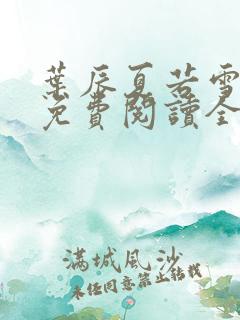 葉辰夏若雪
免費閱讀全
滿城風沙
未經同意禁止轉載